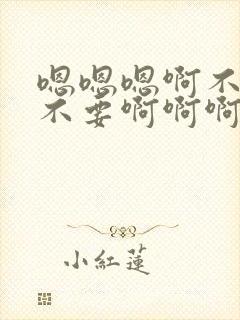 嗯嗯嗯啊不
不要啊啊啊
小紅蓮